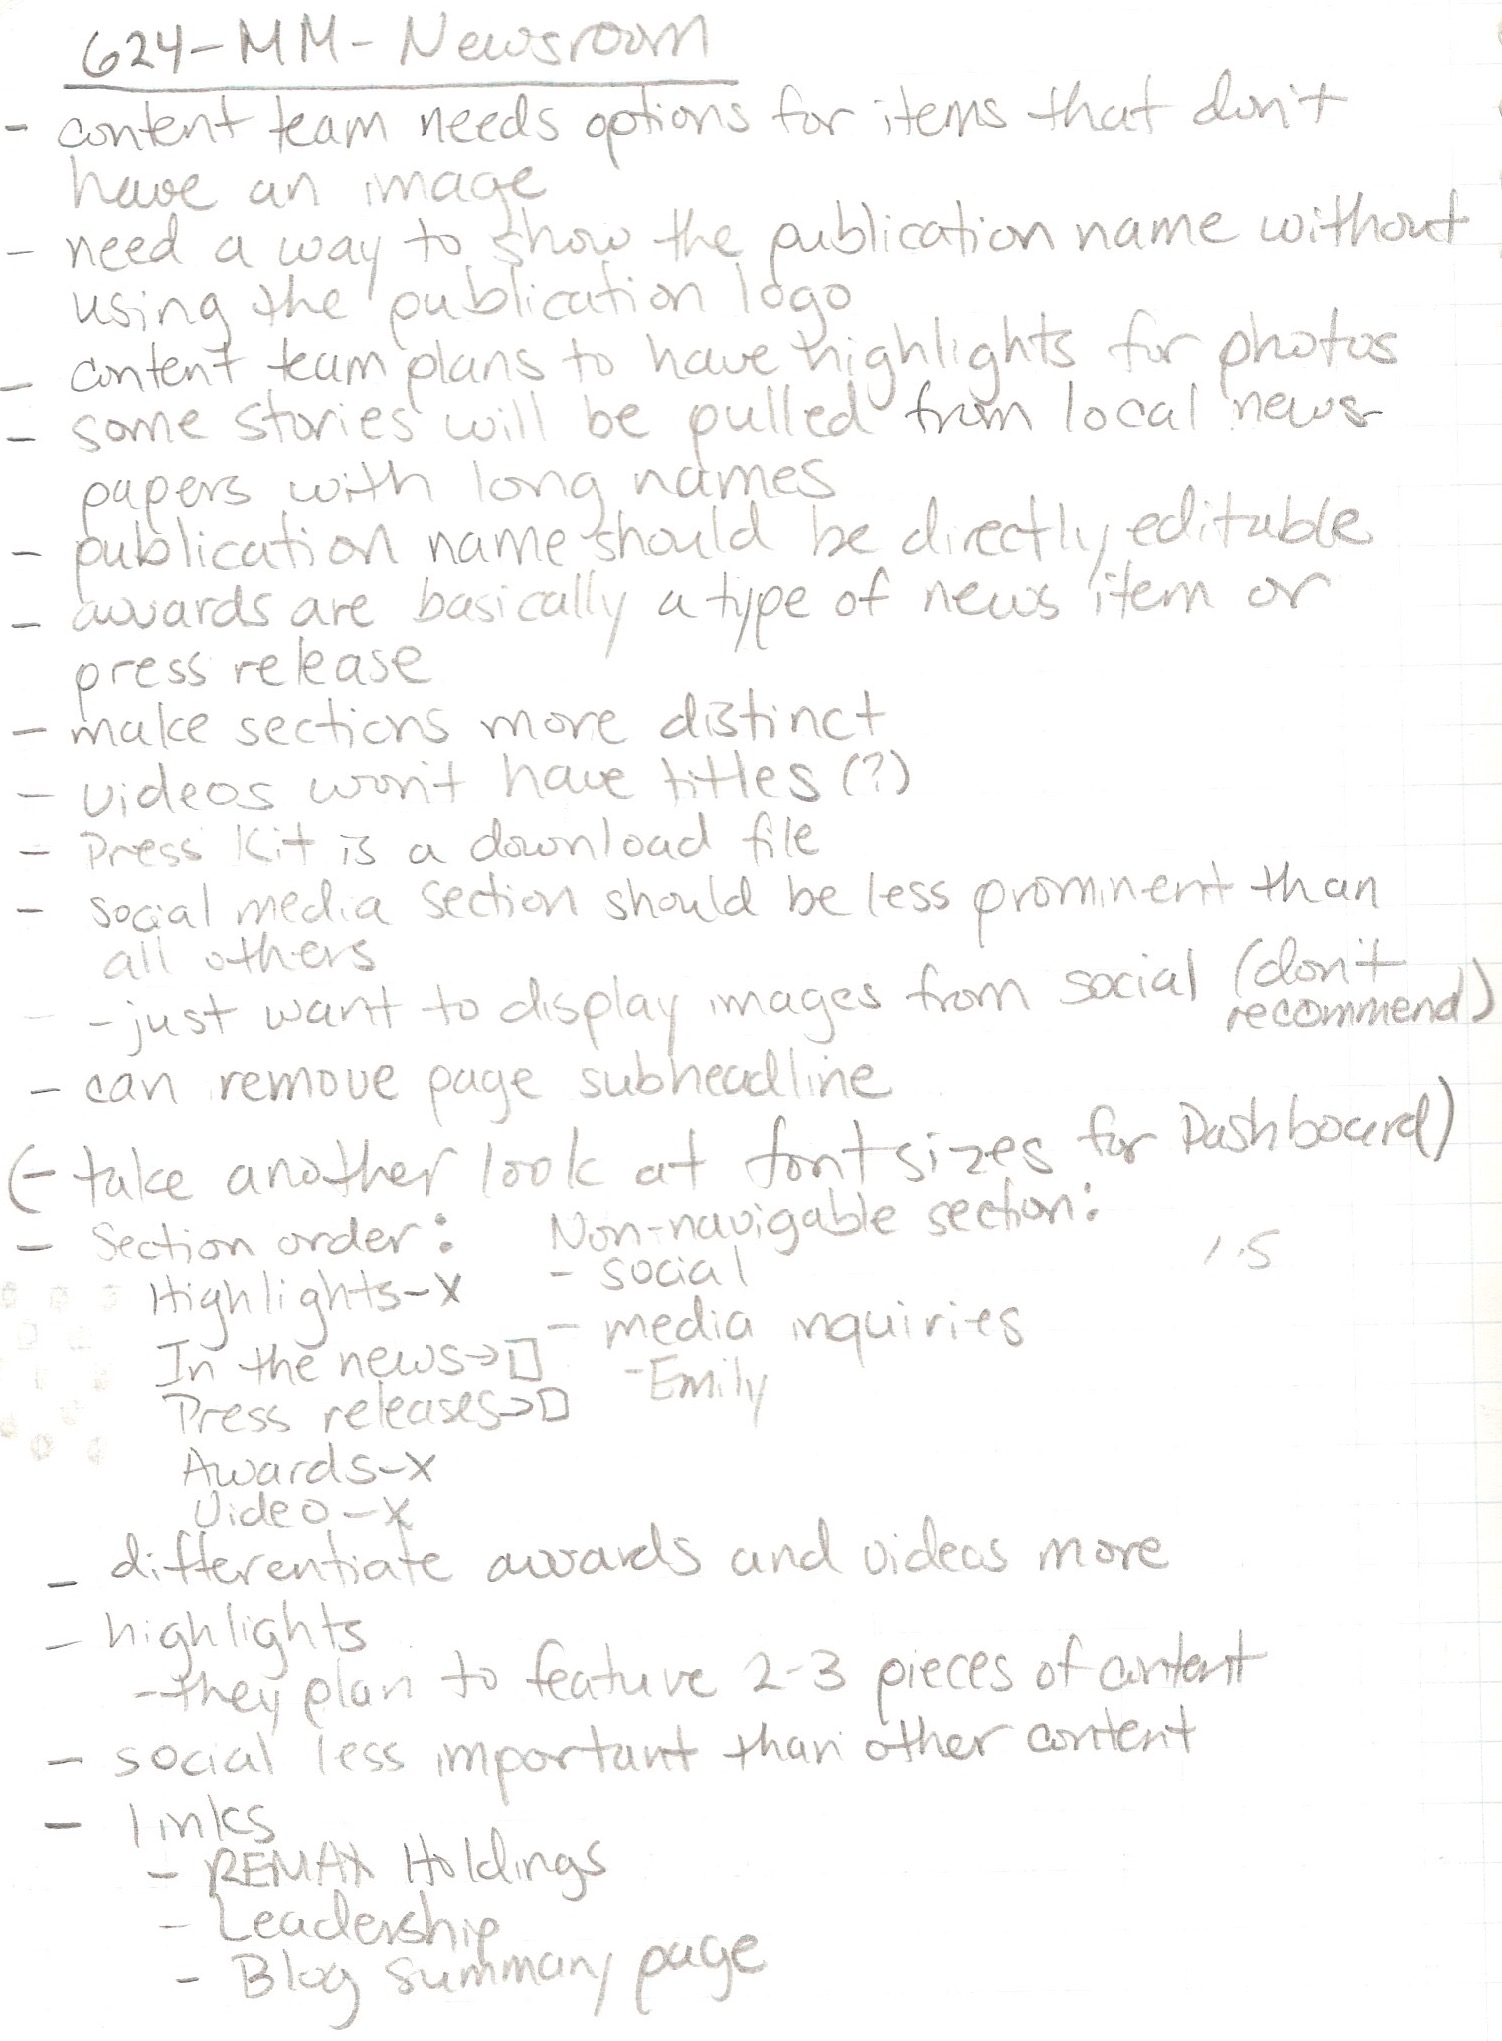 624-MM-Newsroom
- content team needs options for items that don't
have an image
- need a way to show the publication name without
using the publication logo
- content team plans to have highlights for photos
- some stories will be pulled from local news-
papers with long names
- publication name should be directly editable
- awards are basically a type of news item or
press release
- make sections more distinct
- videos won't have titles (?)
- Press Kit is a download file
- social media section should be less prominent than
all others
- just want to display images from social (don't
recommend)
- can remove page subheadline
(- take another look at font sizes for Dashboard)
- Section order: Non-navigable section:
Highlights-X - social
1.5
In the news→[] - media inquiries
Press releases→[] - Emily
Awards-X
Video-X
- differentiate awards and videos more
- highlights
- they plan to feature 2-3 pieces of content
- social less important than other content
- links
- REMAX Holdings
- Leadership
- Blog Summary page